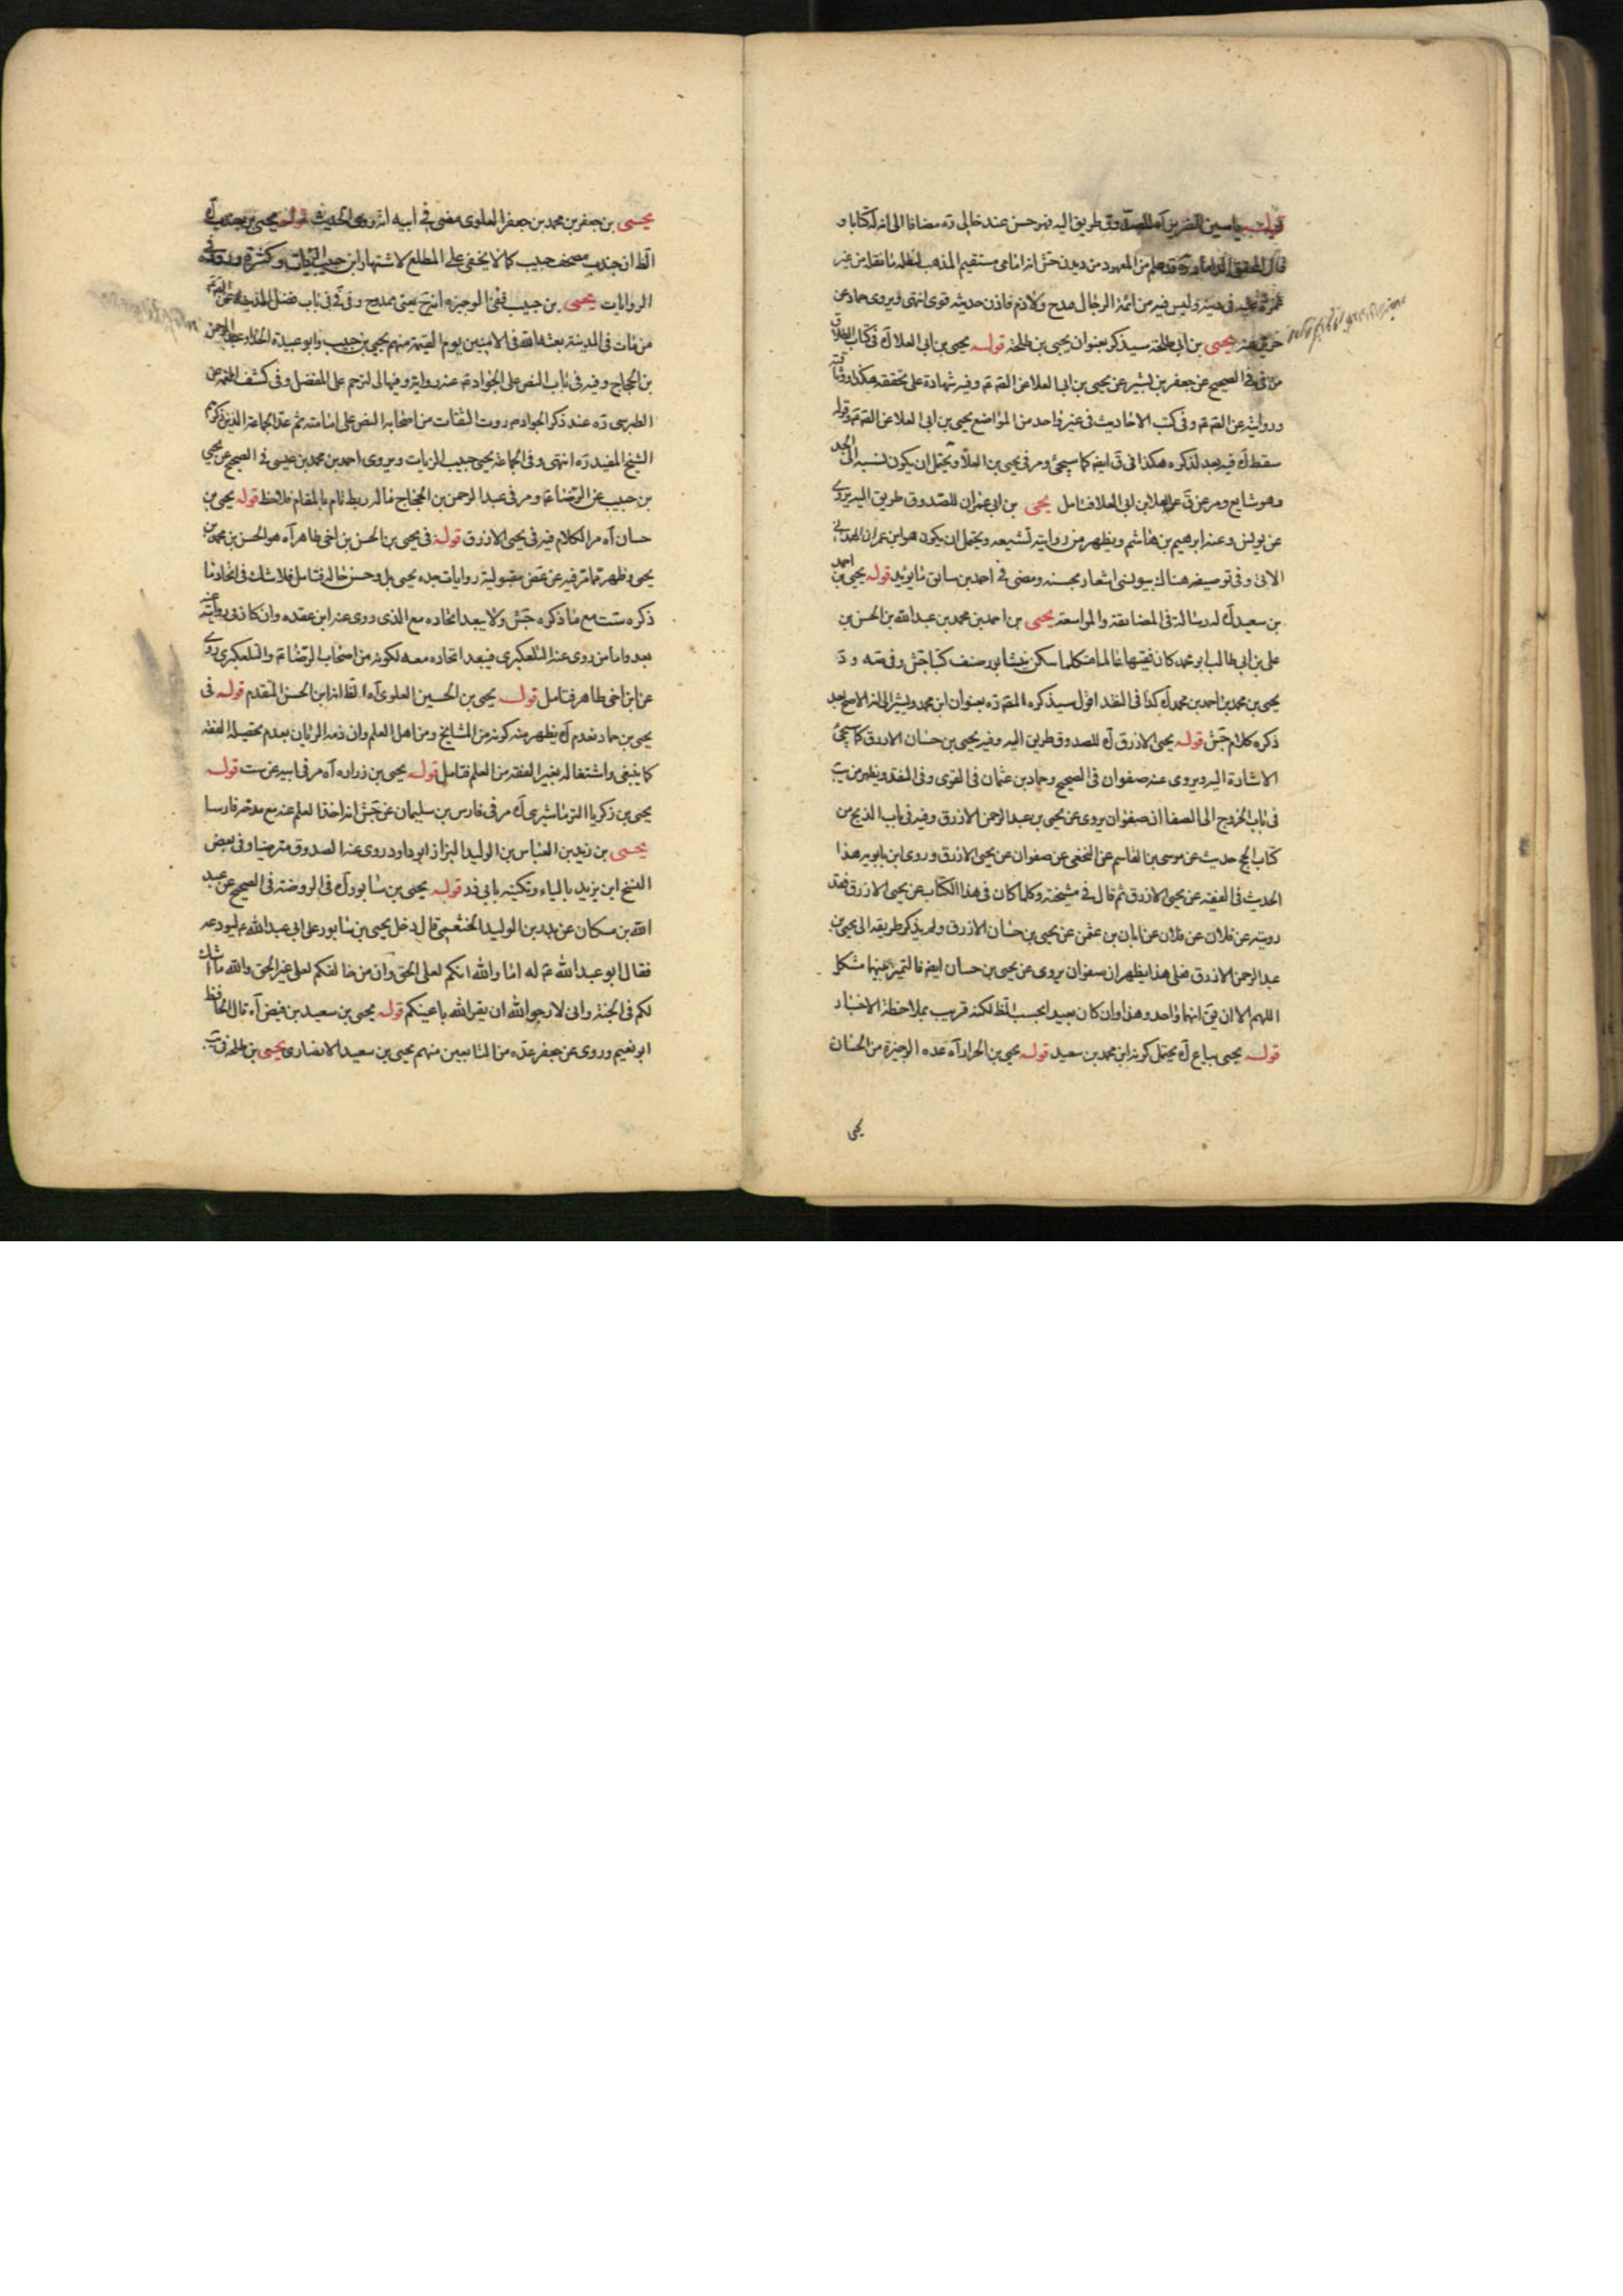 قوله ياسين الضرير آه للصدوق طريق اليه فهو حسن عند خالى ره مضافا الى انه له كتابا و
قال المحقق الداماد ره قد علم من المعهود من ديدن جش انه امامى مستقيم المذهب لنقله ما نقله من غير
غمز عليه فى دينه وليس فيه من ائمة الرجال مدح ولا ذم فاذن حديثه قوى انتهى ويروى حماد عن
حريز عنه يحيى بن ابى طلحة سيذكر بعنوان يحيى بن طلحة قوله يحيى بن ابى العلا آه فى كتاب الطلاق
من فى فى الصحيح عن جعفر بن بشير عن يحيى بن ابى العلا عن الصّ عم وفيه شهادة على تحققه هكذا
وروايته عن الصّ عم وفى كتب الاحاديث فى غير واحد من المواضع يحيى بن ابى العلا عن الصّ عم وقوله
سقط آه فيه بعد لذكره هكذا فى ق ايضا كما سيجئ ومر فى يحيى بن العلا ويحتمل ان يكون نسبه الى الجد
وهو شايع ومر عن ق عن العلا بن ابى العلا فتامل يحيى بن ابى عمران للصدوق طريق اليه يروى
عن يونس وعنه ابرهيم بن هاشم ويظهر من روايته تشيعه ويحتمل ان يكون هو ابن عمران الهمدانى
الاتى وفى توصيفه هناك بيونسى اشعار بحسنه ومضى فى احمد بن سابق ما يؤيد قوله يحيى بن احمد
بن سعيد آه له رسالة فى المضايقة والمواسعة يحيى بن احمد بن محمد بن عبد الله بن الحسن بن
على بن ابى طالب ابو محمد كان فقيها عالما متكلما سكن نيشابور صنف كتبا جش وفى صه و د
يحيى بن محمد بن احمد بن محمد آه كذا فى النقد اقول سيذكره المصّ ره بعنوان ابن محمد ويشير الى انه الاصح بعد
ذكره كلام جش قوله يحيى الازرق آه للصدوق طريق اليه وفيه يحيى بن حسان الازرق كما سيجئ
الاشارة اليه ويروى عنه صفوان فى الصحيح وحماد بن عثمان فى القوى وفى النقد ويظهر من يب
فى باب الخروج الى الصفا ان صفوان يروى عن يحيى بن عبد الرحمن الازرق وفيه فى باب الذبح من
كتاب الحج حديث عن موسى بن القاسم عن النخعى عن صفوان عن يحيى الازرق وروى ابن بابويه هذا
الحديث فى الفقيه عن يحيى الازرق ثم قال فى مشيخته وكلما كان فى هذا الكتاب عن يحيى الازرق فقد
رويته عن فلان عن فلان عن ابان بن عثمن عن يحيى بن حسان الازرق ولم يذكر طريقه الى يحيى بن
عبد الرحمن الازرق فعلى هذا يظهر ان صفوان يروى عن يحيى بن حسان ايضا فالتميز بينهما مشكل
اللهم الا ان يق انهما واحد وهذا وان كان بعيدا بحسب الظ لكنه قريب بملاحظة الاخبار
قوله يحيى بياع آه يحتمل كونه ابن محمد بن سعيد قوله يحيى بن الجرار آه عده الوجيزة من الحسان
يحيى
يحيى بن جعفر بن محمد بن جعفر العلوى مضى فى ابيه انه روى الحديث قوله يحيى بن جندب آه
الظ ان جندب مصحف حبيب كما لا يخفى على المطلع لاشتهار ابن حبيب الزيات وكثرة وروده فى
الروايات يحيى بن حبيب ففى الوجيزه انه ح يعنى ممدوح وفى فى باب فضل المدينة عن الصّ عم
من مات فى المدينة بعثه الله فى الامنين يوم القيمة منهم يحيى بن حبيب وابو عبيدة الحذاء وعبد الرحمن
بن الحجاج وفيه فى باب النص على الجواد عم عنه رواية وفيها الى لترحم على المفضل وفى كشف الغمه عن
الطبرسى ره عند ذكر الجواد عم روت الثقات من اصحابه النص على امامته ثم عد الجماعة الذين ذكرهم
الشيخ المفيد ره انتهى وفى الجماعة يحيى حبيب الزيات ويروى احمد بن محمد بن عيسى فى الصحيح عن يحيى
بن حبيب عن الرضا عم ومر فى عبد الرحمن بن الحجاج ما له ربط تام بالمقام فلاحظ قوله يحيى بن
حسان آه مر الكلام فيه فى يحيى الازرق قوله فى يحيى بن الحسن بن اخى طاهر آه هو الحسن بن محمد بن
يحيى وظهر مما مر فيه عن غض مقبولية روايات جده يحيى بل وحسن حاله فتامل فلا شك فى اتحاد ما
ذكره ست مع ما ذكره جش ولا يبعد اتحاده مع الذى روى عنه ابن عقده وان كان فى روايته عنه
بعد واما من روى عنه التلعكبرى فيبعد اتحاده معه لكونه من اصحاب الرضا عم والتلعكبرى روى
عن ابن اخى طاهر فتامل قوله يحيى بن الحسين العلوى آه الظ انه ابن الحسن المتقدم قوله فى
يحيى بن حماد نعدم آه يظهر منه كونه من المشايخ ومن اهل العلم وان ذمه الريان بعدم تحصيله الفقه
كما ينبغى واشتغاله بغير الفقه من العلم فتامل قوله يحيى بن زراره آه مر فى ابيه عن ست قوله
يحيى بن زكريا الترماشيرى آه مر فى فارس بن سليمان عن جش انه اخذ العلم عنه مع مدحه فارسا
يحيى بن زيد بن العباس بن الوليد البزاز ابو داود روى عنه الصدوق مترضيا وفى بعض
النسخ ابن يزيد بالياء وتكنيه بابى ذر قوله يحيى بن سابور آه فى الروضة فى الصحيح عن عبد
الله بن مسكان عن بدر بن الوليد الخثعمى قال دخل يحيى بن سابور على ابى عبد الله عم ليودعه
فقال ابو عبد الله عم له اما والله انكم لعلى الحق وان من خالفكم لعلى غير الحق والله ما اشك
لكم فى الجنة وانى لارجو الله ان يقر الله باعينكم قوله يحيى بن سعيد بن فيض آه قال الحافظ
ابو نعيم وروى عن جعفر عده من التابعين منهم يحيى بن سعيد الانصارى يحيى بن طلحه فى